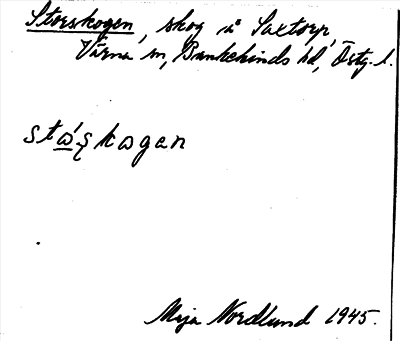 Storskogen, skog å Saxtorp,
Värna sn, Bankekinds hd, Östg. l.
Mija Nordlund 1945.